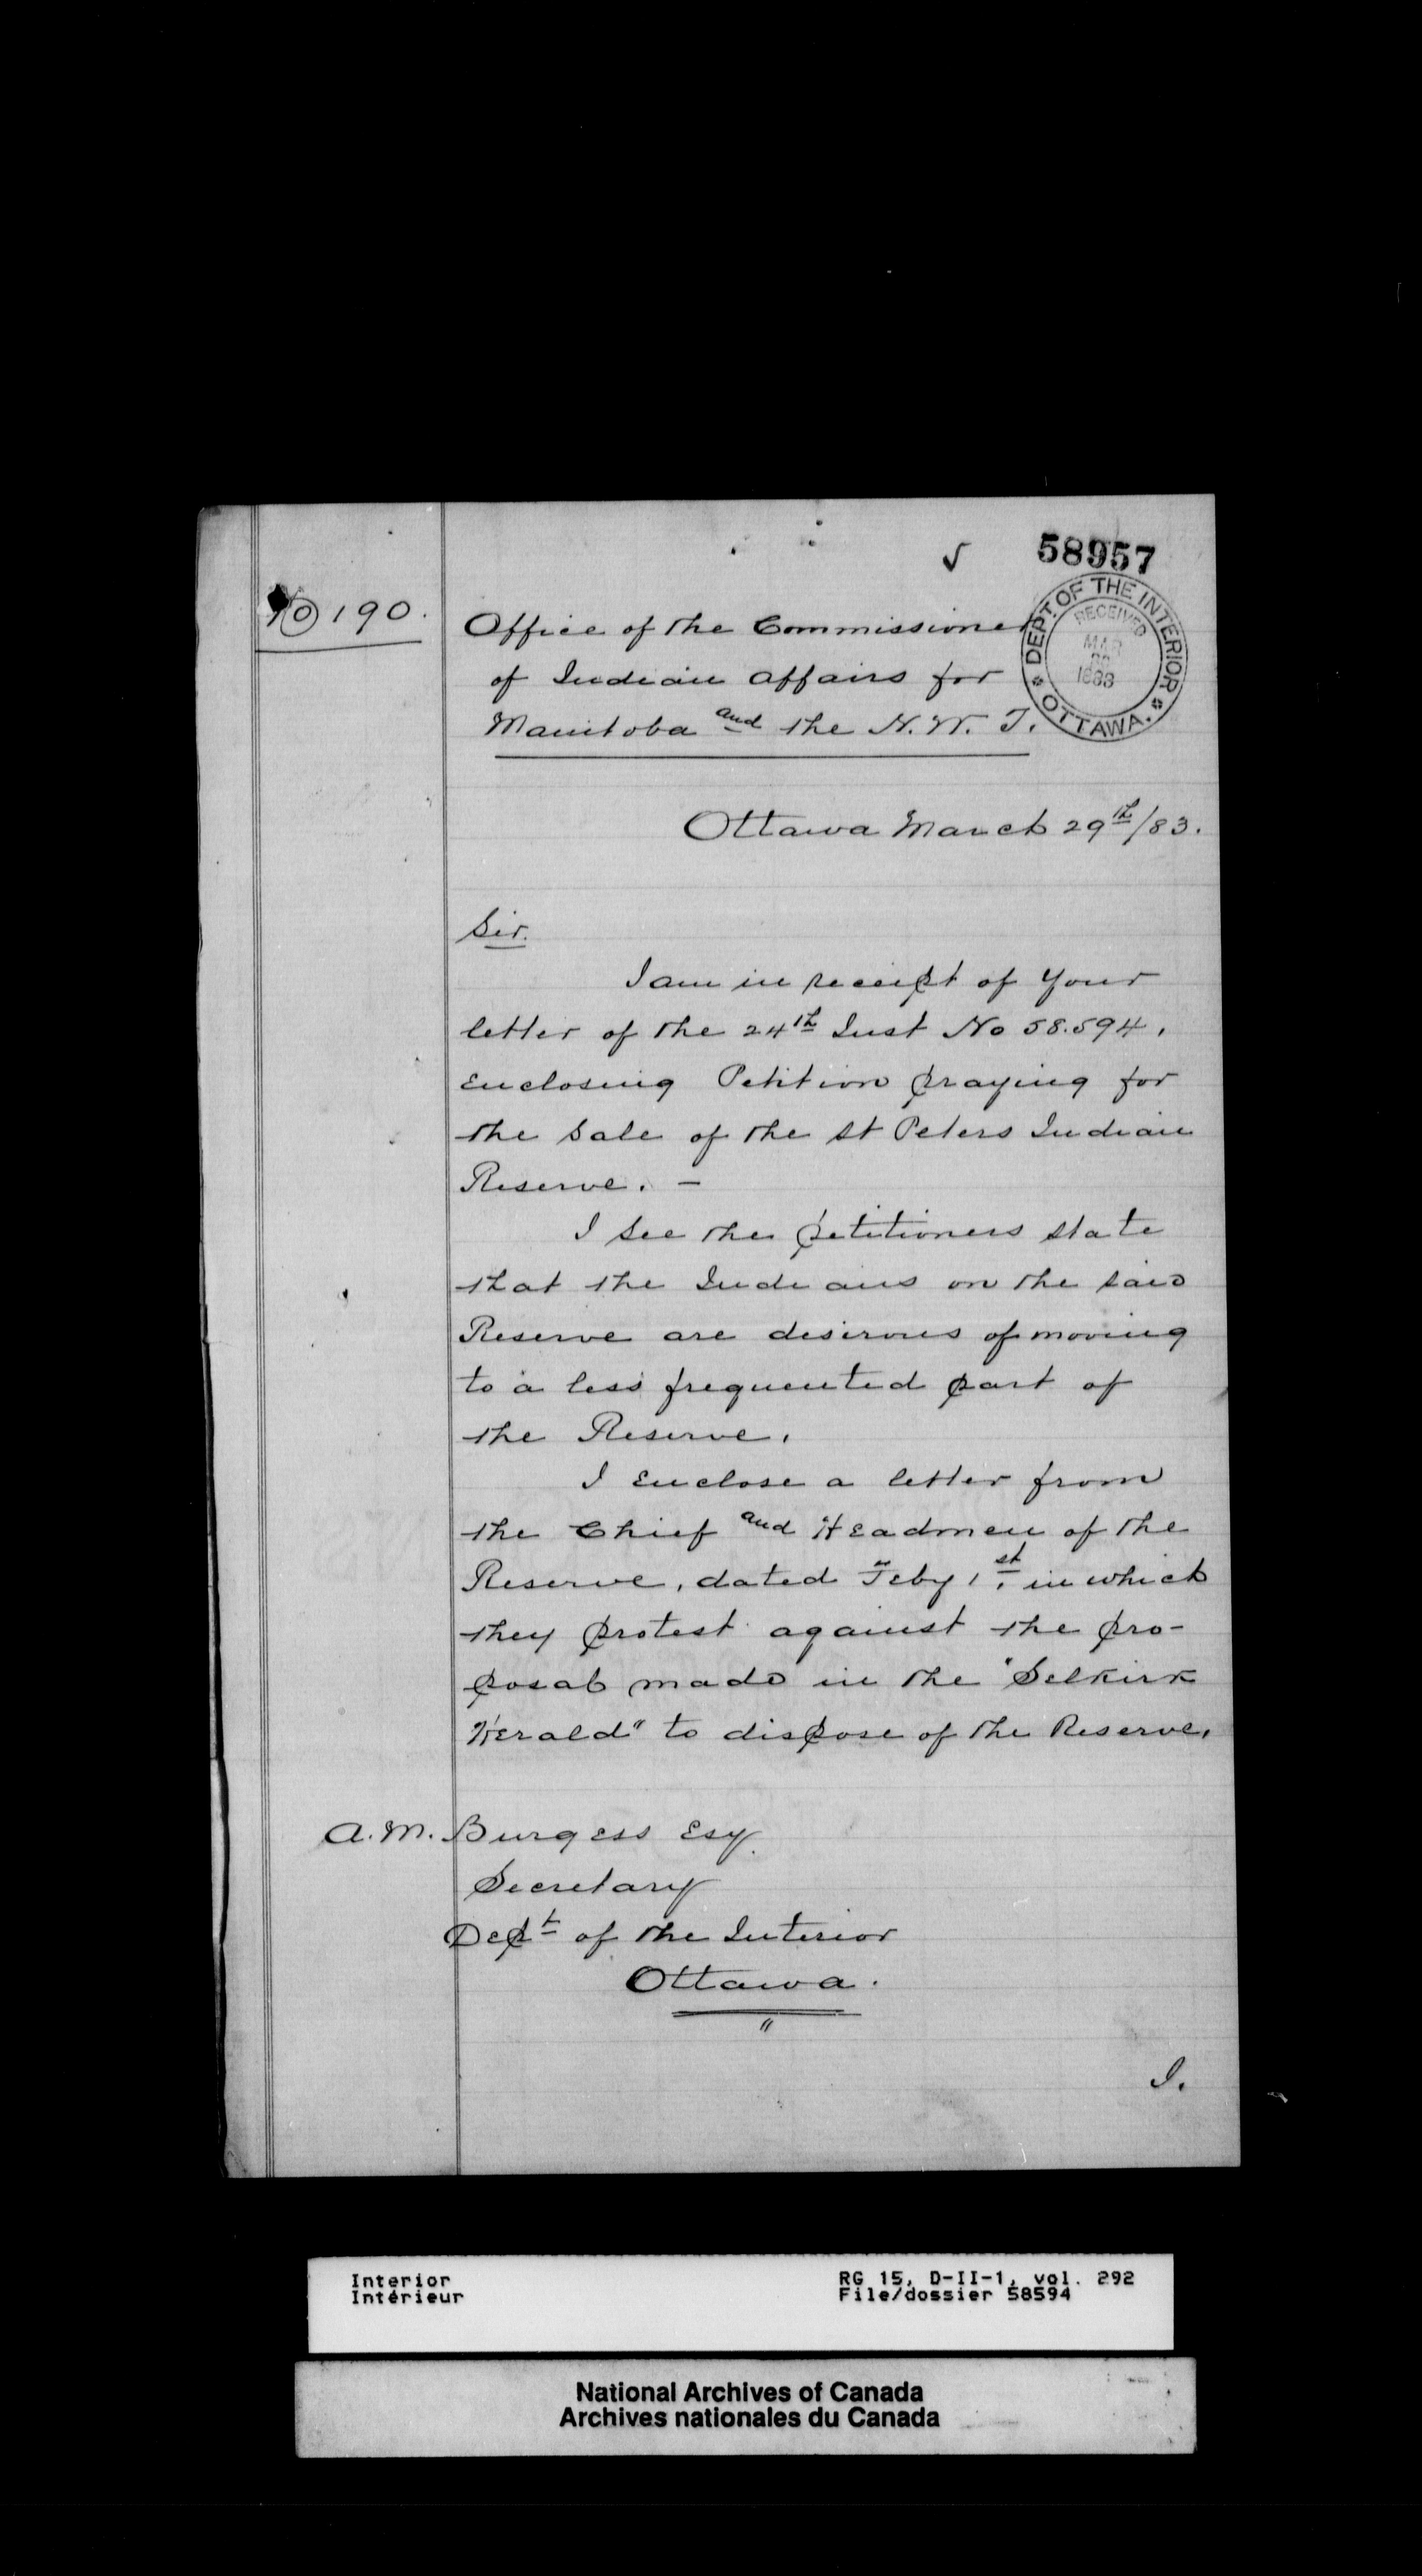 58957
190.
DEPT. OF THE INTERIOR
RECEIVED
MAR
1883
OTTAWA.
Office of the Commissioner
of Indian Affairs for
Manitoba and the N.W.T.
Ottawa March 29th/83.
Sir.
I am in receipt of Your
letter of the 24th Inst No 58.594,
enclosing Petition praying for
the Sale of the St Peters Indian
Reserve. —
I see the petitioners state
that the Indians on the said
Reserve are desirous of moving
to a less frequented part of
the Reserve.
I enclose a letter from
the Chief and Headmen of the
Reserve, dated Feby 1st. in which
they protest against the pro-
posal made in the "Selkirk
Herald" to dispose of the Reserve.
A.M. Burgess Esq.
Secretary
Dept of the Interior
Ottawa.
"
I.
Interior
Intérieur
RG 15, D-II-1, vol. 292
File/dossier 58594
National Archives of Canada
Archives nationales du Canada